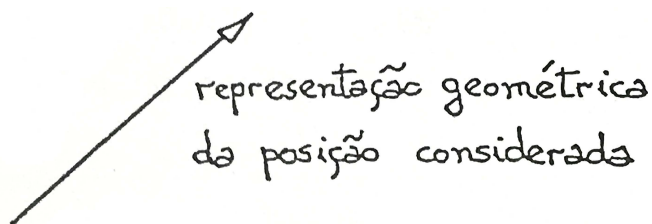 representação geométrica
da posição considerada